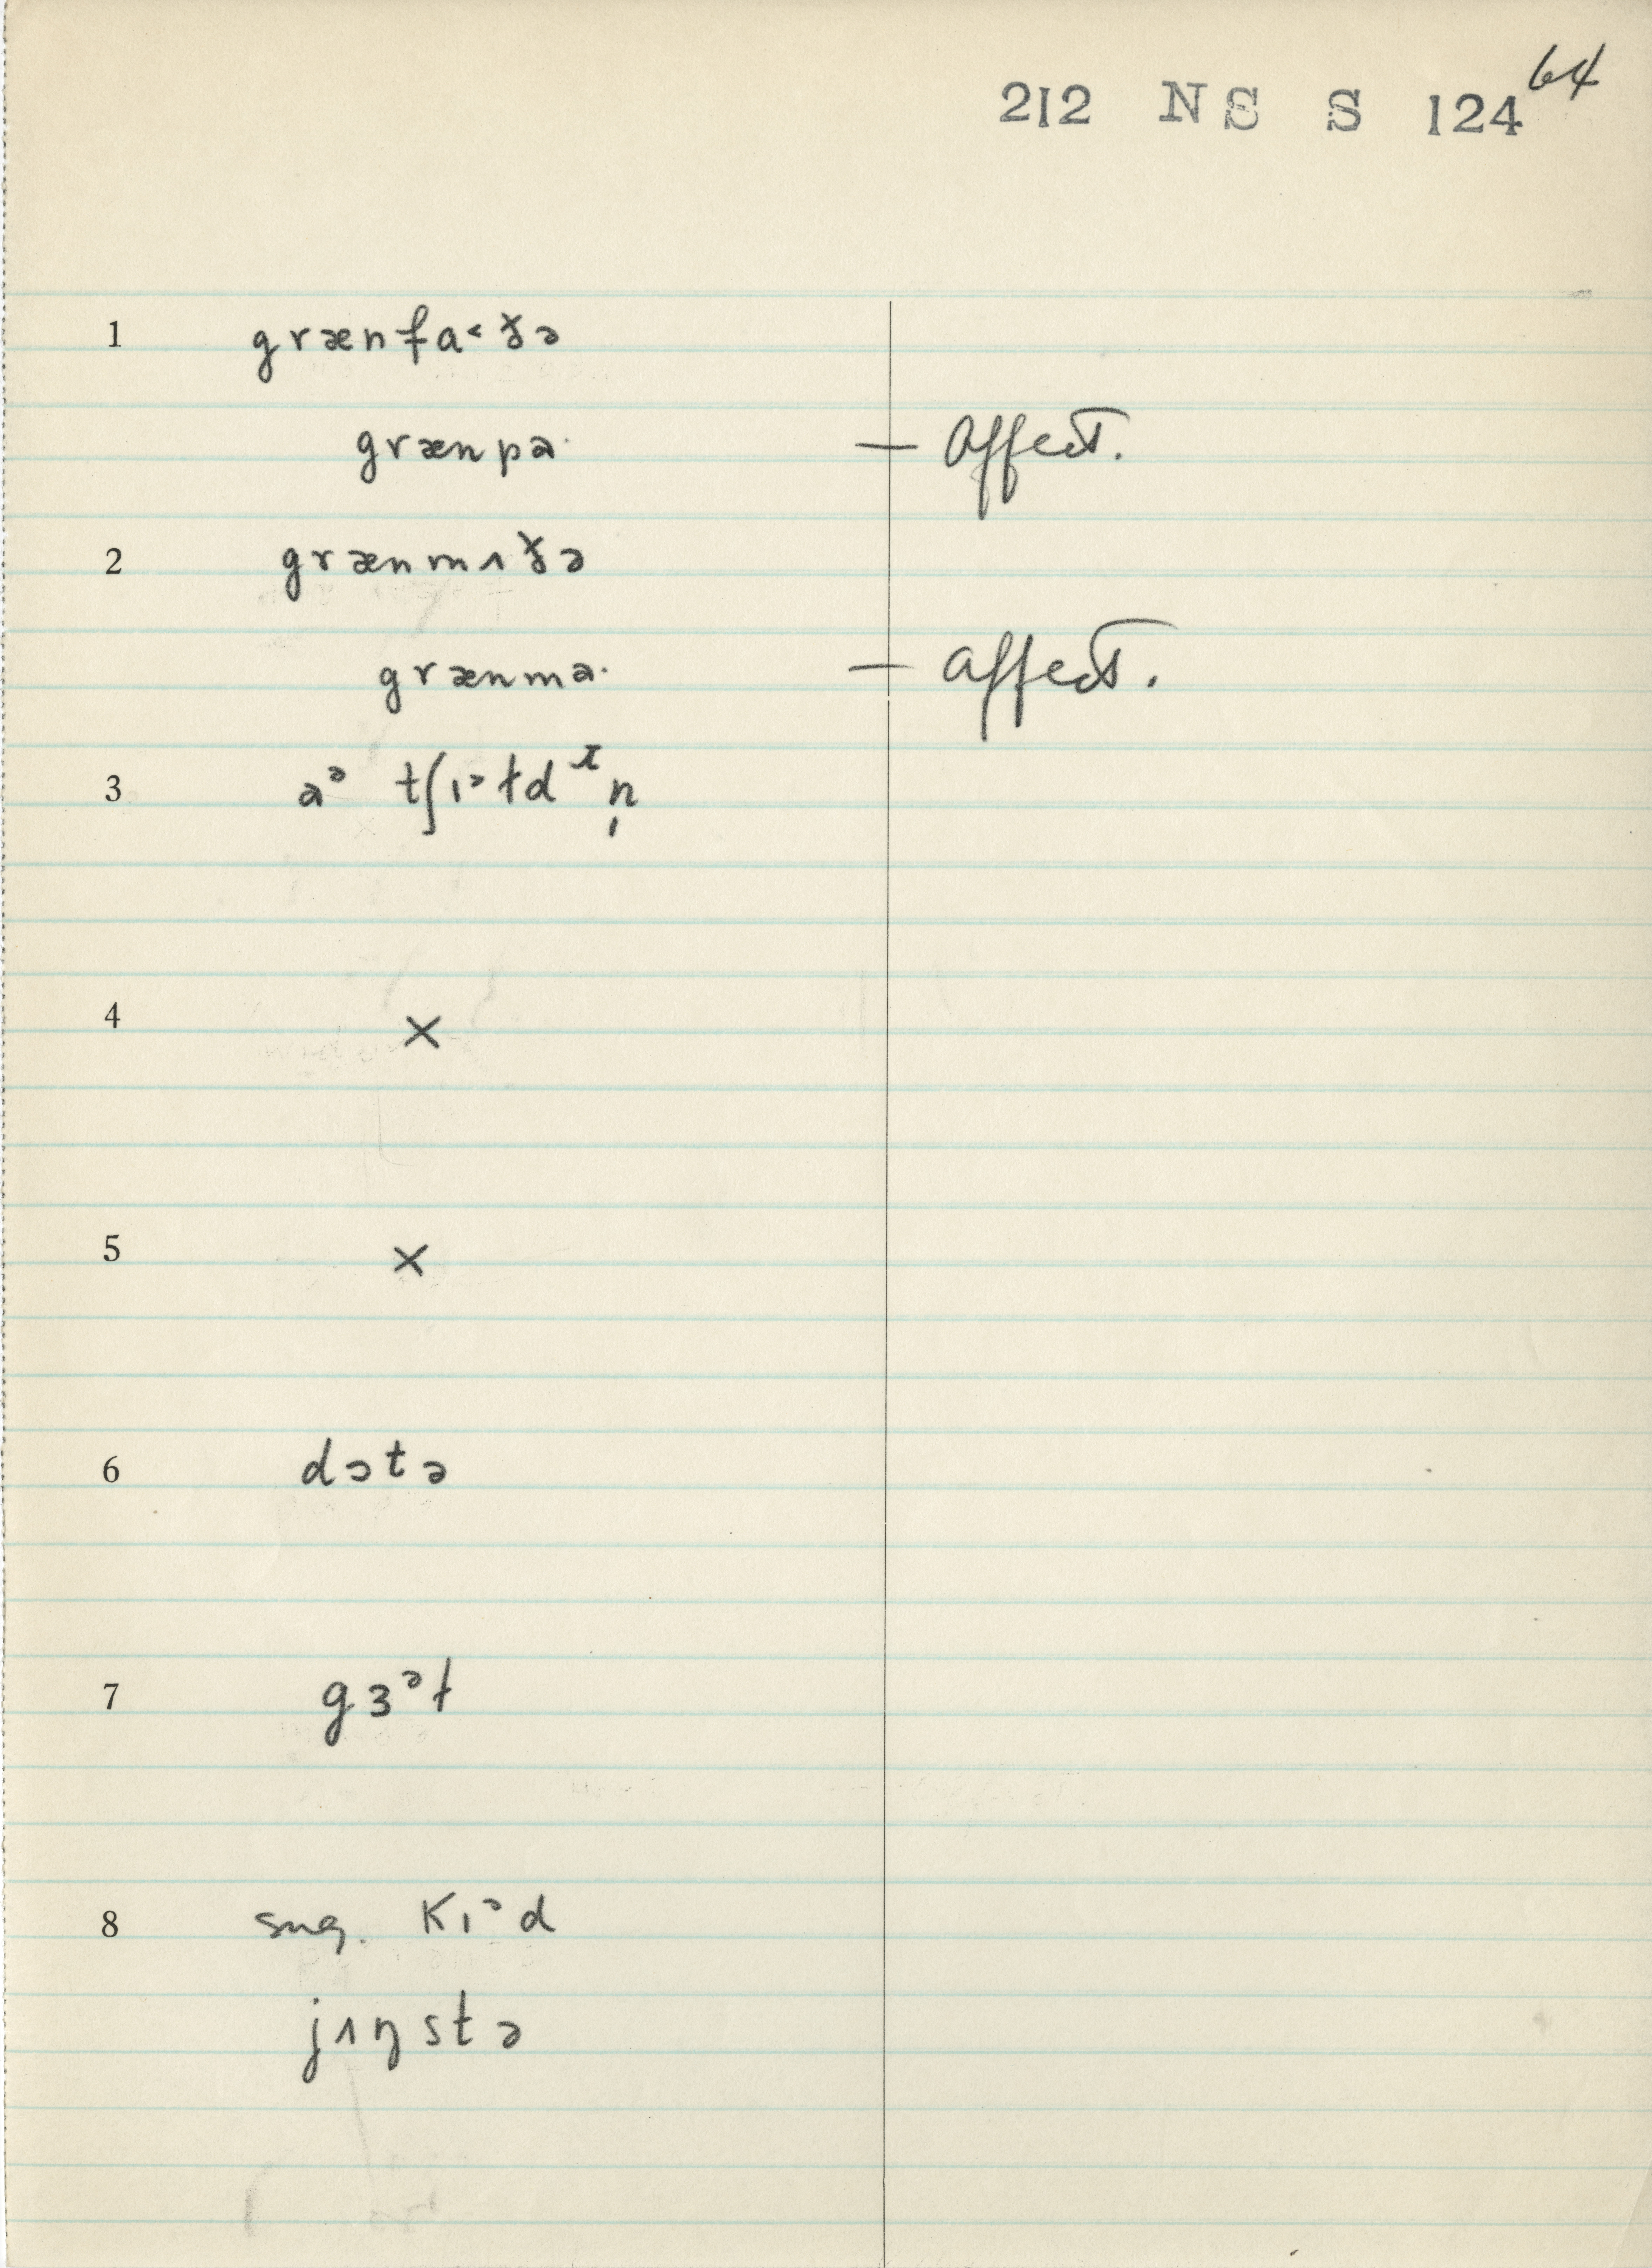 64
212 NS S 124
1 grænfa˂ɤ̌ə
grænpɑ· — affect.
2 grænmʌɤ̌ə
grænmɑ· — affect.
3 ɑᵊ tʃɪ˃ɫdᶦn̩
4 ×
5 ×
6 dɔtə
7 gɜᵊɫ
8 sug. kɪᵊd
jʌŋstə